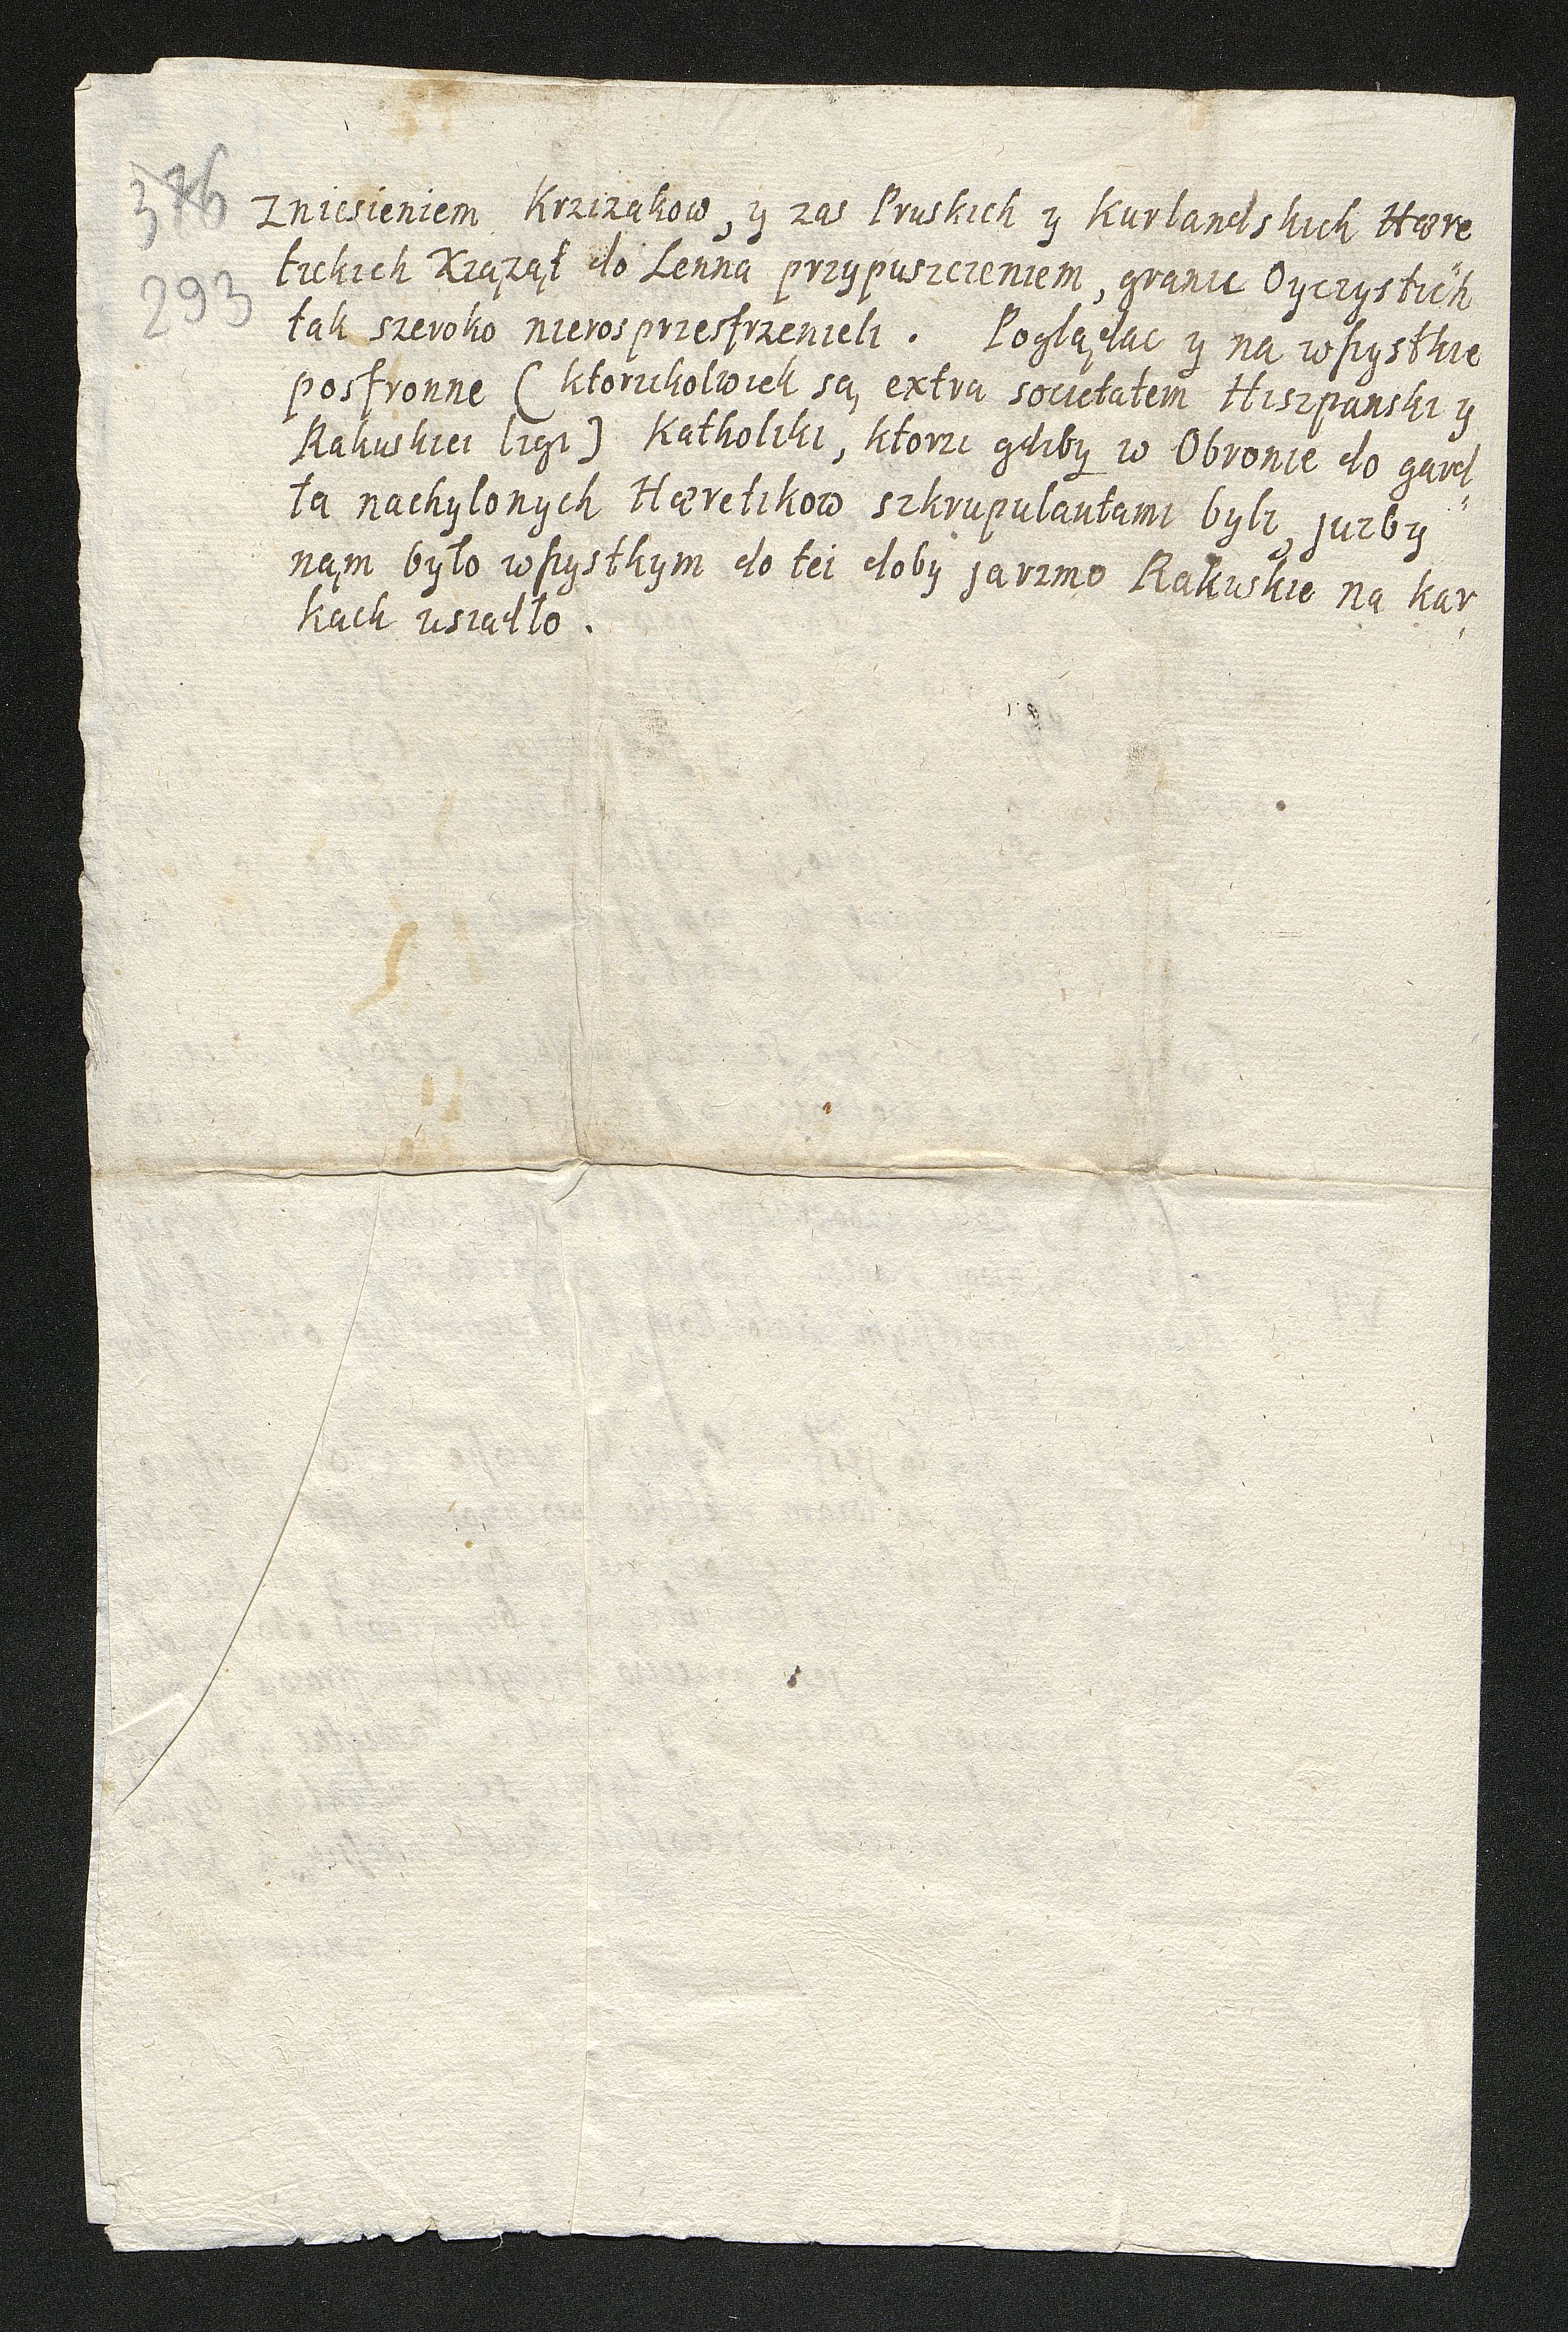 376
293
Zniesieniem Krziżakow, y zas Pruskich y Kurlandskich Hære
tickich Xiążąt do Lenna przypuszczeniem, granic Oyczystich
tak szeroko nierosprzestrzenieli. Poglądac y na wszystkie
postronne (ktorichkolwiek są, extra societatem Hiszpanski y
Rakuskiei ligi) Katholiki, ktorzi gdiby w Obronie do gard
ła nachylonych Hæretikow szkrupulantami byli, jużby
nąm było wszystkym do tei doby jarzmo Rakuskie na kar
kach usiadło.